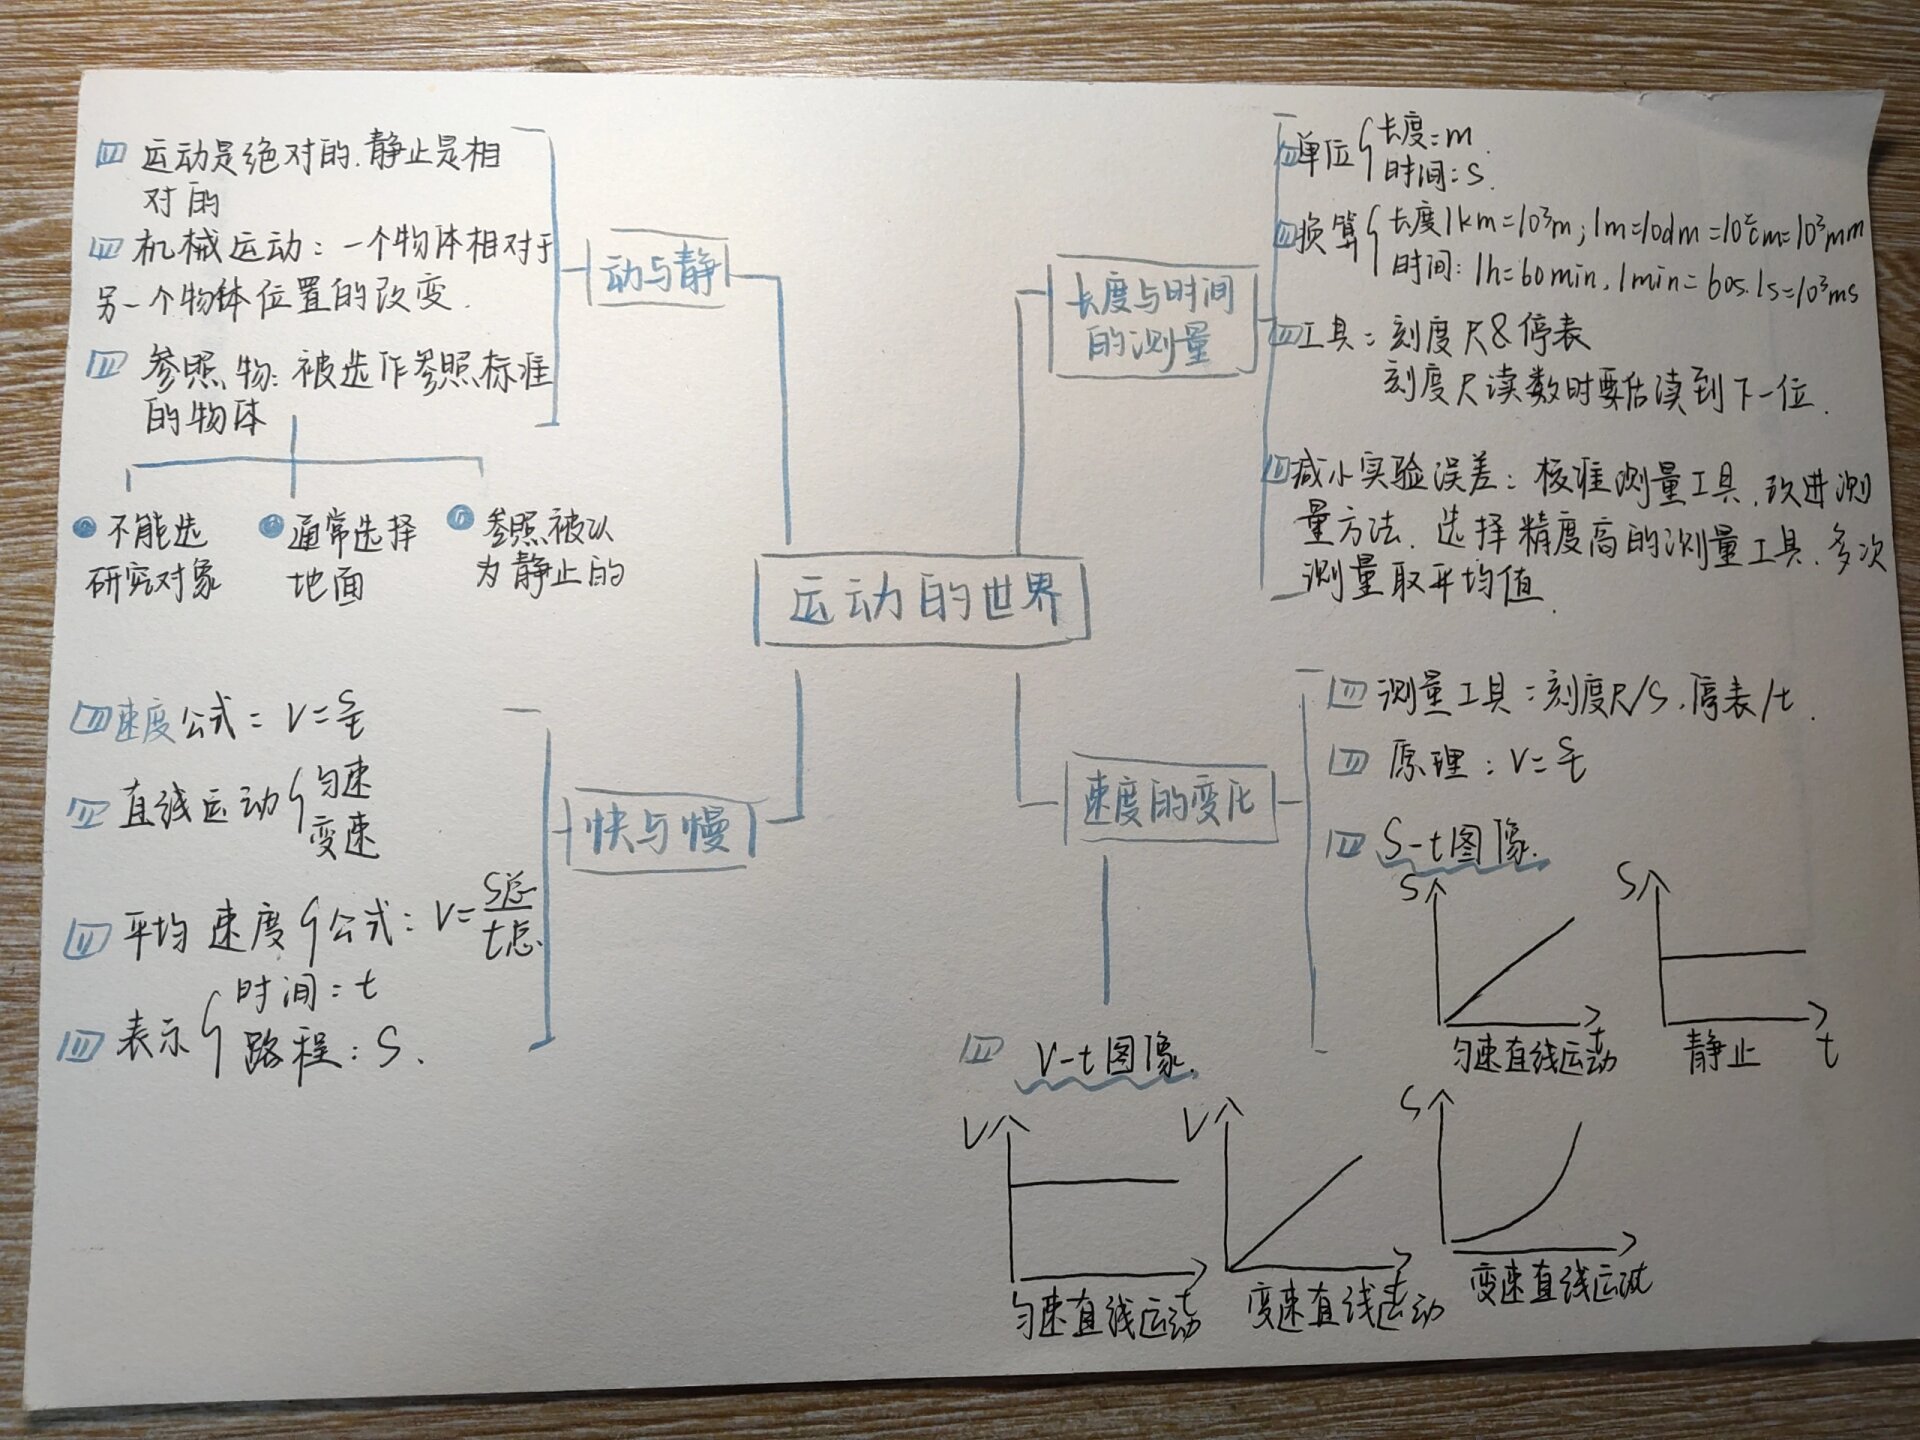 运动是绝对的.静止是相
对的
机械运动:一个物体相对于
另一个物体位置的改变.
参照物:被选作参照标准
的物体
不能选
研究对象
通常选择
地面
参照被认
为静止的
动与静
长度与时间
的测量
单位{长度:m.
时间:s.
换算{长度1km=10³m;1m=10dm=10²cm=10³mm
时间:1h=60min,1min=60s.1s=10³ms
工具:刻度尺&停表
刻度尺读数时要估读到下一位.
减小实验误差:校准测量工具、改进测
量方法、选择精度高的测量工具、多次
测量取平均值.
运动的世界
速度公式:V=S/t
直线运动{匀速
变速
平均速度{公式:V=S总/t总.
表示{时间:t
路程:S.
快与慢
速度的变化
测量工具:刻度尺/S,停表/t.
原理:V=S/t
S-t图像.
S
t
匀速直线运动
S
t
静止
S
t
变速直线运动
V-t图像.
V
t
匀速直线运动
V
t
变速直线运动